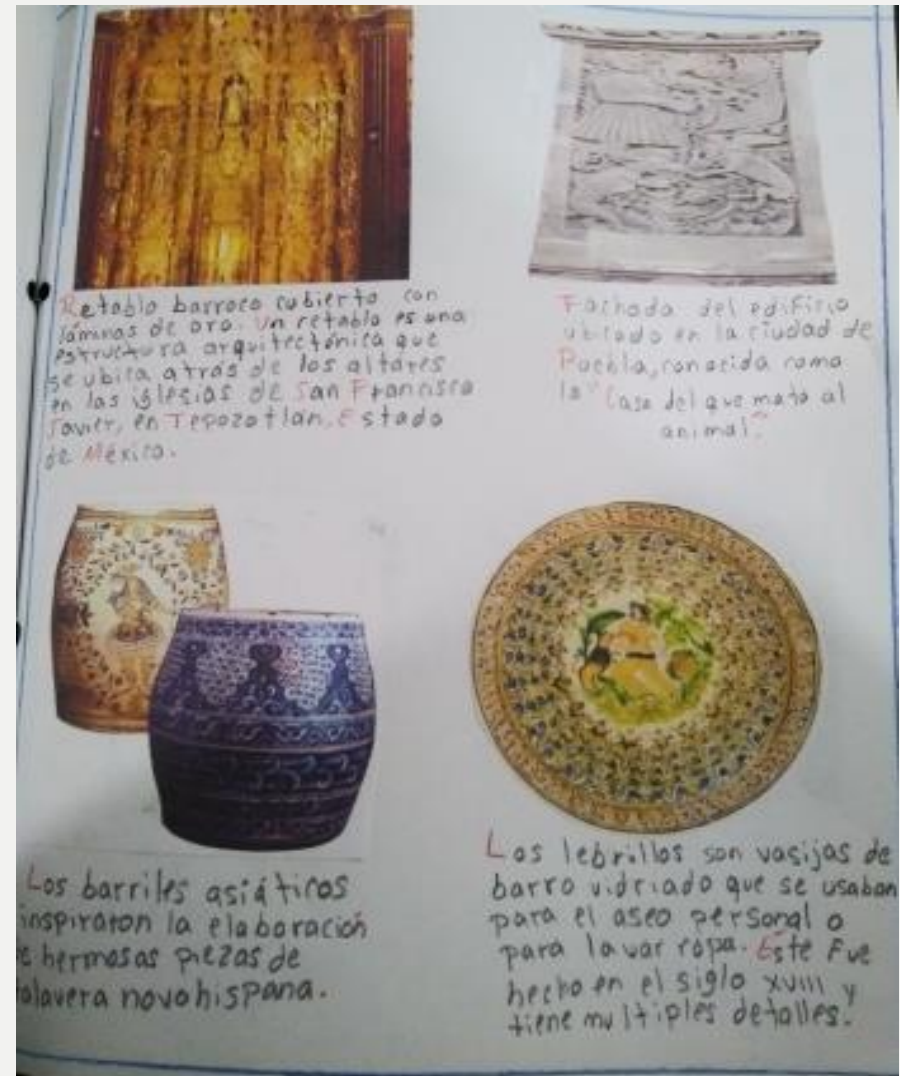 Retablo barroco cubierto con
láminas de oro. Un retablo es una
estructura arquitectónica que
se ubica atrás de los altares
en las iglesias de San Francisco
Javier, en Tepozotlan, Estado
de México.
Fachada del edificio
ubicado en la ciudad de
Puebla, conocida como
la "Casa del que mato al
animal."
Los barriles asiáticos
inspiraron la elaboración
de hermosas piezas de
talavera novohispana.
Los lebrillos son vasijas de
barro vidriado que se usaban
para el aseo personal o
para lavar ropa. Este fue
hecho en el siglo XVIII y
tiene multiples detalles.